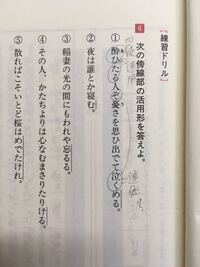 [練習ドリル]
4 次の傍線部の活用形を答えよ。
① 酔ひたる人ぞ憂さを思ひ出でて泣くめる。
② 夜は誰とか寝む。
③ 稲妻の光の間にもわれや忘るる。
④ その人、かたちよりは心なむまさりたりける。
⑤ 散ればこそいとど桜はめでたけれ。